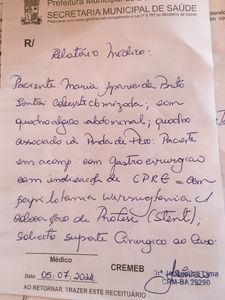 Prefeitura Municipal
SECRETARIA MUNICIPAL DE SAÚDE
R/
Relatório Médico:
Paciente: Maria Aparecida Brito
Santos colecistectomizada, com
quadro algico abdominal, quadro
associado à Perda de Peso. Paciente
em acomp. com Gastro cirurgião
com indicação de CPRE = com
papilotomia c/
colocação de Prótese (Stent),
solicito suporte Cirurgico ao Caso.
Médico
CREMEB
Data: 05.07.2024
CRM-BA 29290
AO RETORNAR, TRAZER ESTE RECEITUÁRIO